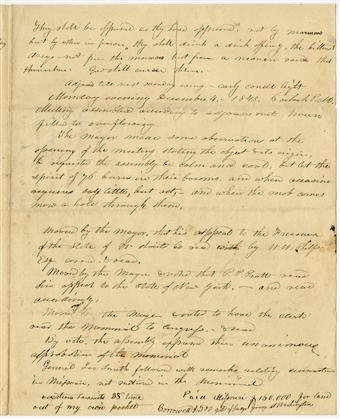 They shall be oppressed as they have oppressed, not by
but by others in power, they shall drink a drink offering, the bitterest
dregs not from the mormons but from a meaner source than
themselves. God shall curse them.
Adjd till next monday evening - early candle light
Monday evening December 4. 1843. 6 o'clock P.M.
Meeting assembled according to adjournment, house
filled to overflowing
The Mayor made some observations at the
opening of the meeting stating the object &
he requested the assembly to be calm and cool, but let the
spirit of 76 burn in their bosoms, and when occasion
requires say little, but act - and when the mob comes
mow a hole through them.
Moved by the mayor, that his appeal to the
of the State of Vt. should be read by W. W. Phelps
Esqr. and read.
Moved by the Mayor & voted that P. P. Pratt read
his appeal to the state of New York. - and read
accordingly.
Moved by the Mayor & voted to have the clerk
read the Memorial to Congress. & read
By vote, the assembly expressed their unanimous
approbation of the memorial
General Jos Smith followed with remarks relating
in Missouri, not written in the memorial
38
out of my own pocket
Paid Missouri $150,000 for land
Borrowed $500 going to Washington